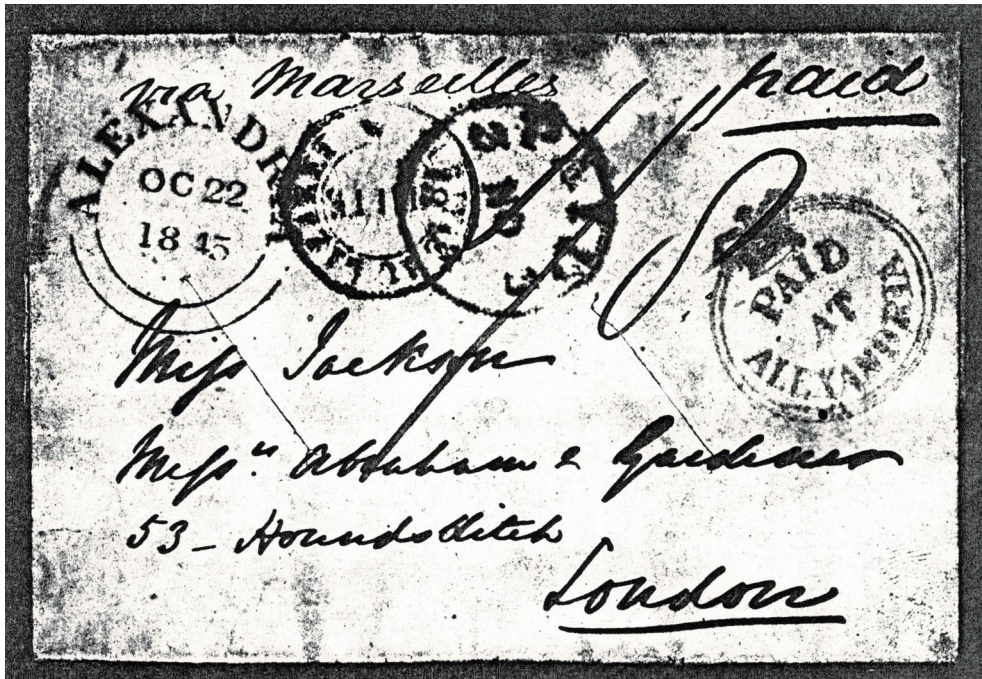 via Marseilles
paid
ALEXANDRIA
OC 22
1845
PAID
AT
ALEXANDRIA
Miss Jackson
Messrs Abraham & Gardener
53 - Houndsditch
London